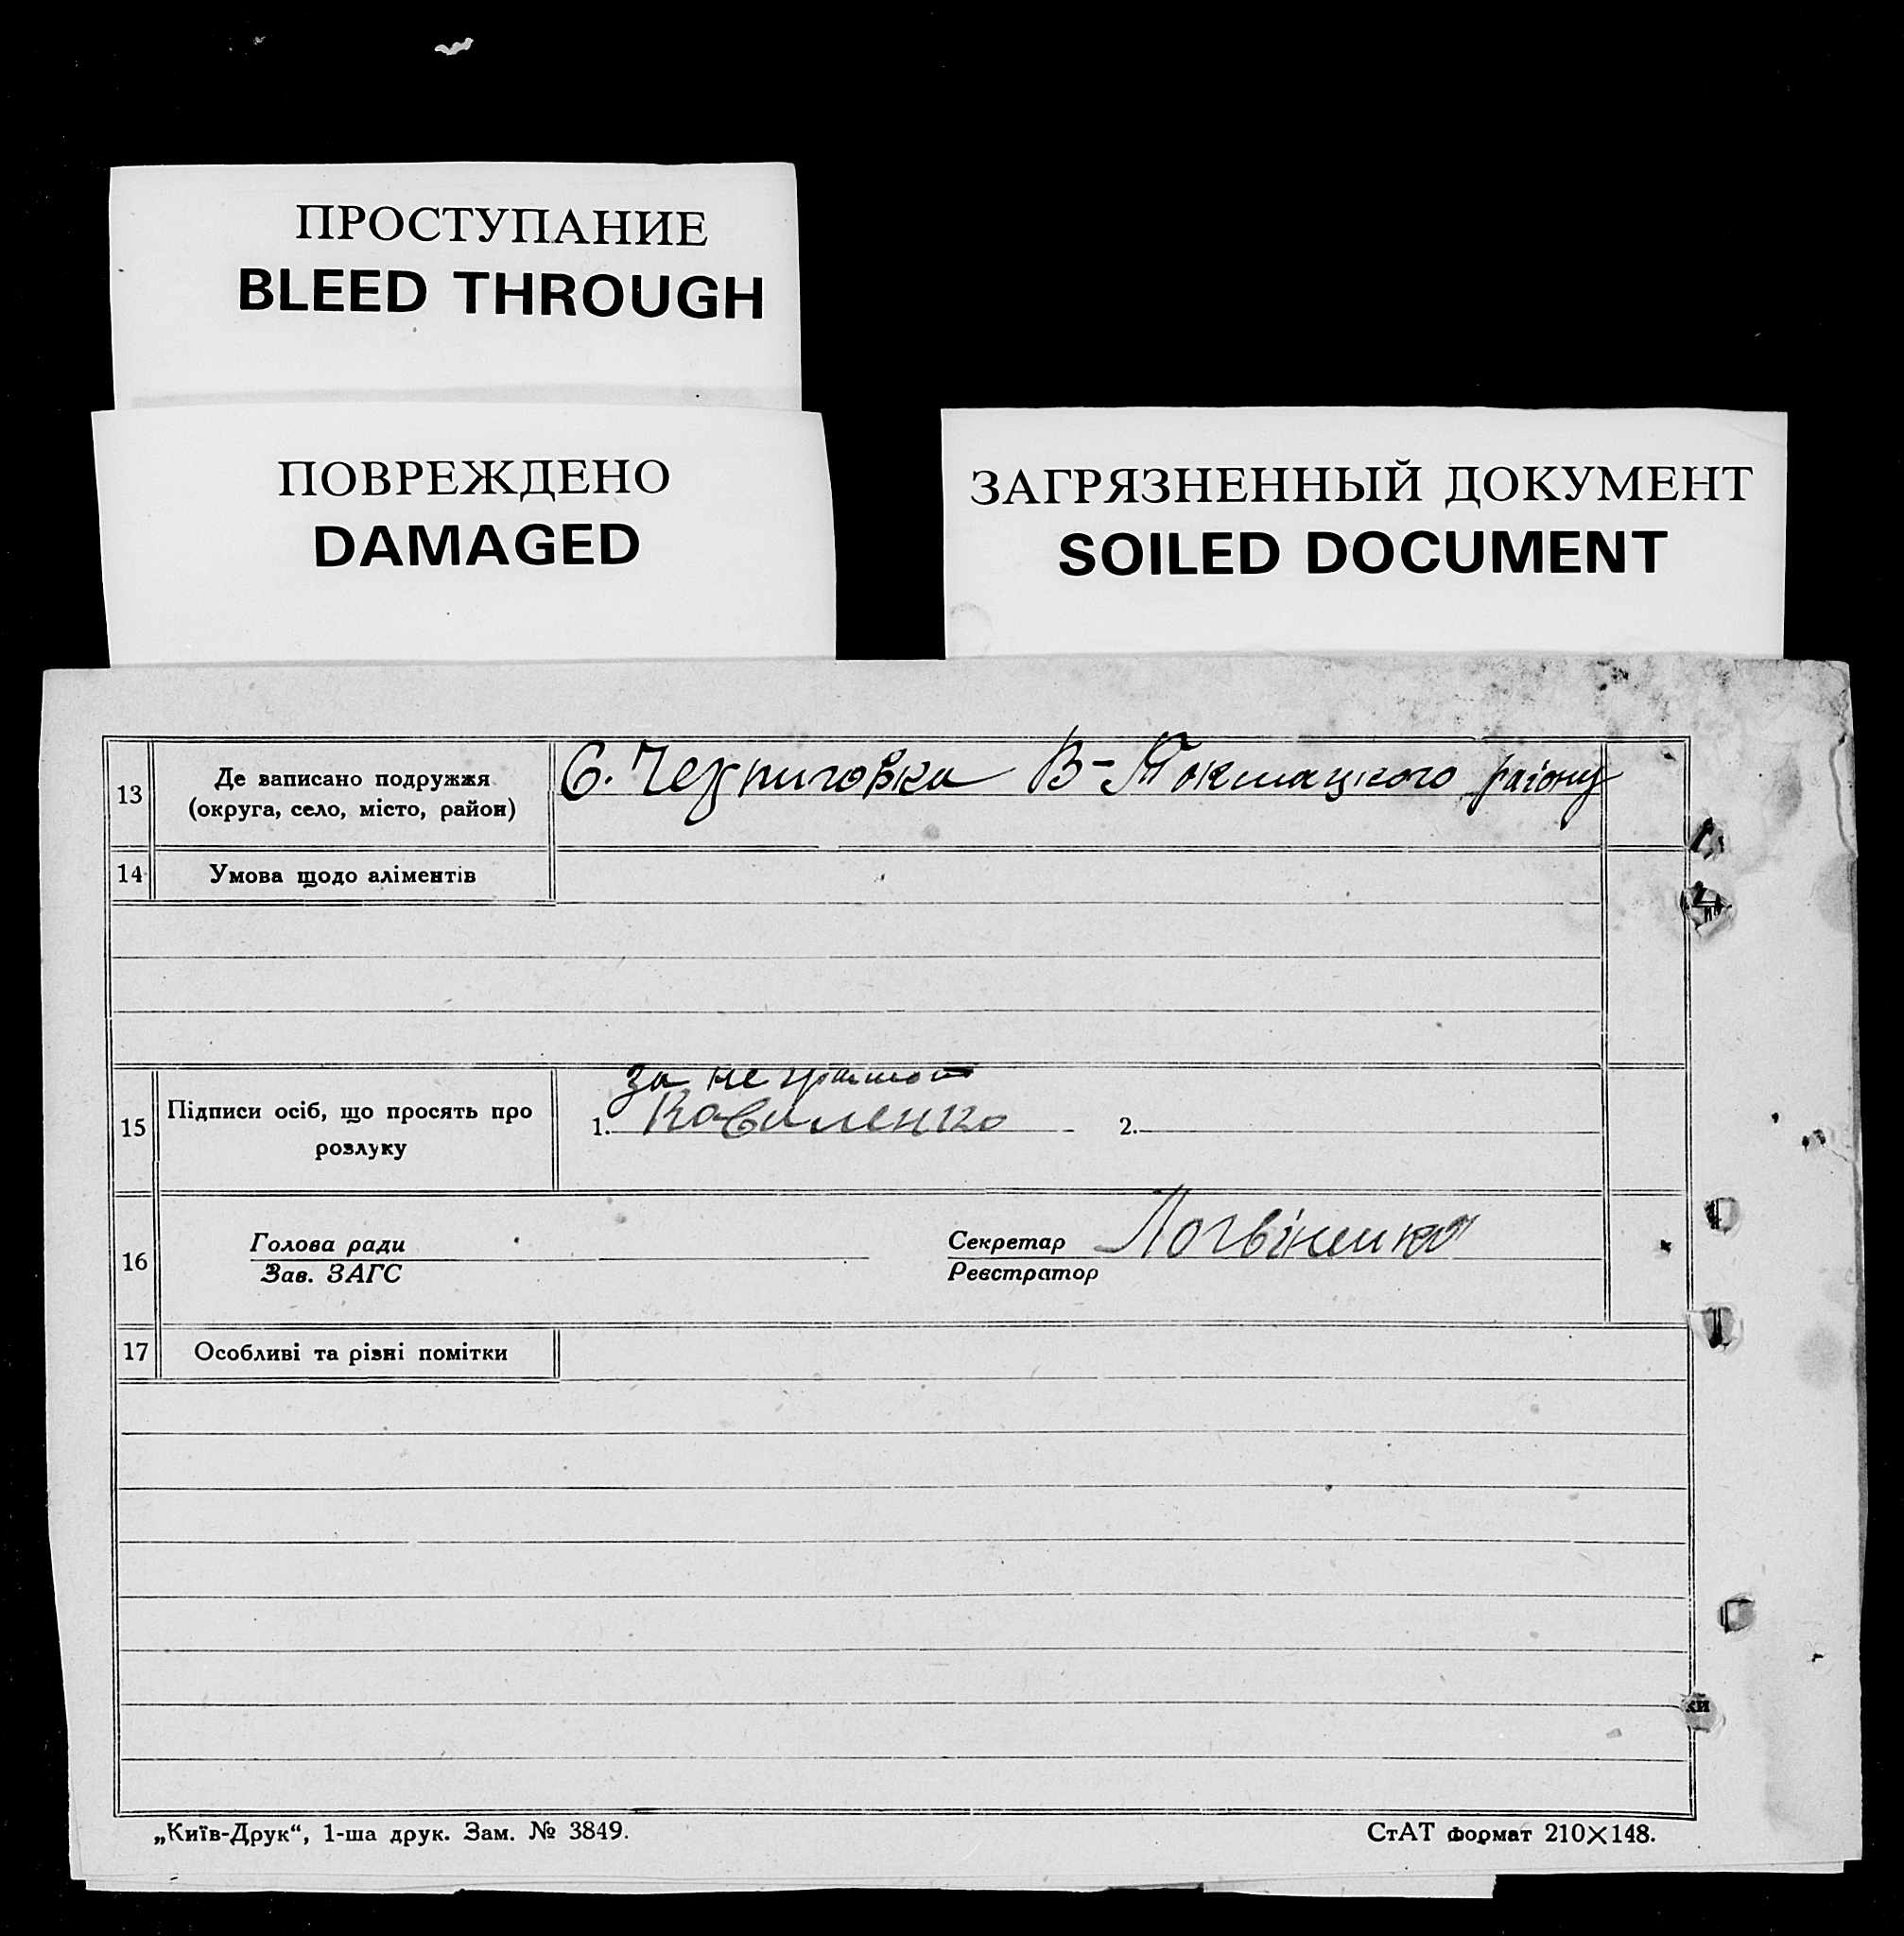 ПРОСТУПАНИЕ
BLEED THROUGH
ПОВРЕЖДЕНО
DAMAGED
ЗАГРЯЗНЕННЫЙ ДОКУМЕНТ
SOILED DOCUMENT
13
Де записано подружжя
(округа, село, місто, район)
С. Черниговка В-Токмацкого району
14
Умова щодо аліментів
15
Підписи осіб, що просять про
розлуку
за не
1. Коваленко
2.
16
Голова ради
Зав. ЗАГС
Секретар Логвіненко
Реєстратор
17
Особливі та різні помітки
ки
„Київ-Друк“, 1-ша друк. Зам. № 3849.
СтАТ формат 210×148.